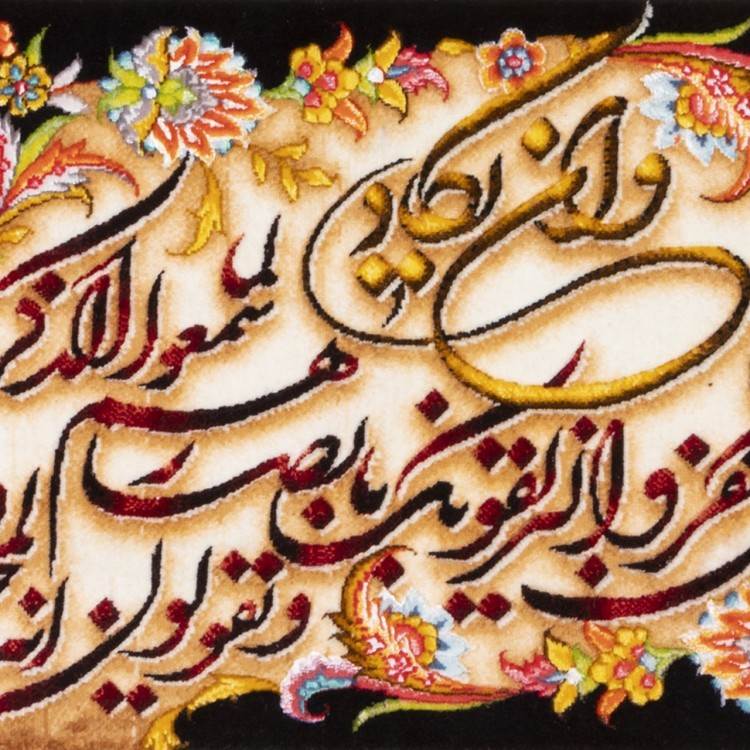 وان یکاد
لما سمعوا الذکر
کفروا لیزلقونک بابصارهم
ویقولون انه